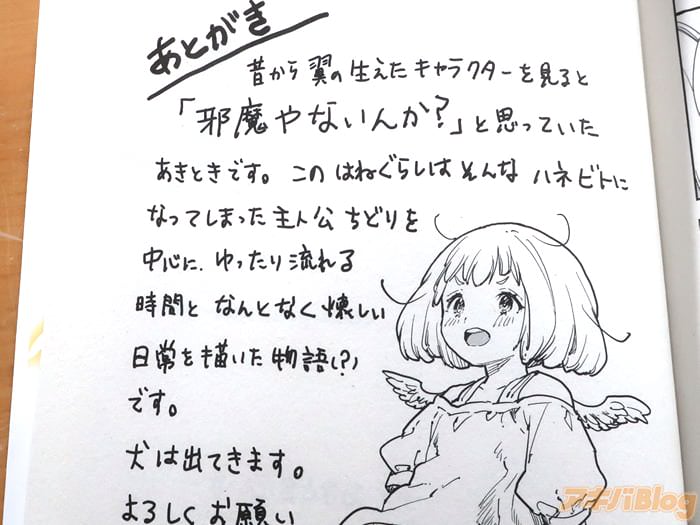 あとがき
昔から翼の生えたキャラクターを見ると
「邪魔やないんか?」と思っていた
あきときです。このはねぐらしはそんなハネビトに
なってしまった主人公ちどりを
中心に、ゆったり流れる
時間となんとなく懐しい
日常を描いた物語(?)
です。
犬は出てきます。
よろしくお願い
アキバBlog